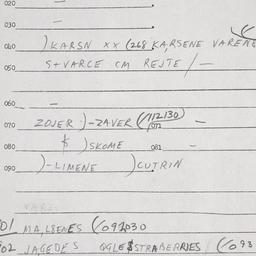 020
030 —
040 ) KARSN XX (268 KARSENE VARENE
050 S+VARCE CM REJTE /—
060 —
070 ZOJER :)-ZAVER (112130 —
071
080 $ ) SKOME 081 —
090 )-LIMENE )CUTRIN
01 MA,LSENES (092030
02 JAGEDES QGLE$STRABERRIES (093